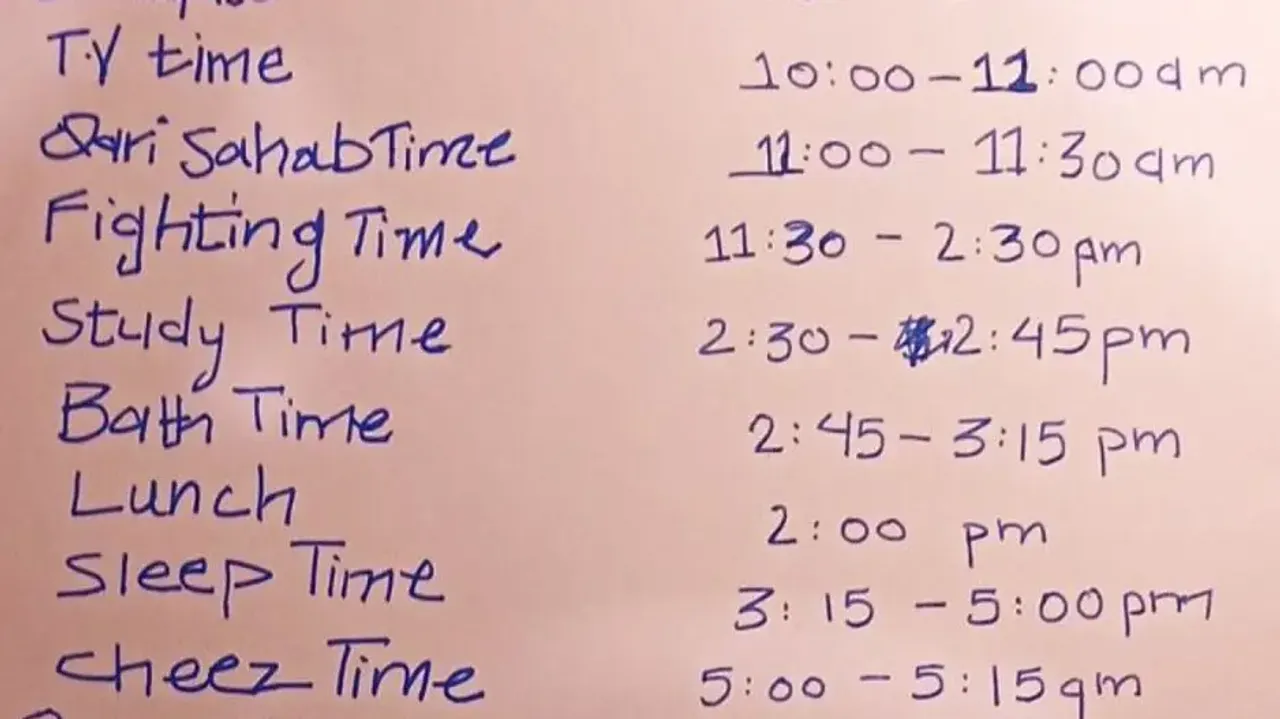 T.V time 10:00 – 11:00am
Qari Sahab Time 11:00 – 11:30am
Fighting Time 11:30 – 2:30pm
Study Time 2:30 – 2:45pm
Bath Time 2:45 – 3:15 pm
Lunch 2:00 pm
Sleep Time 3:15 – 5:00pm
Cheez Time 5:00 – 5:15am